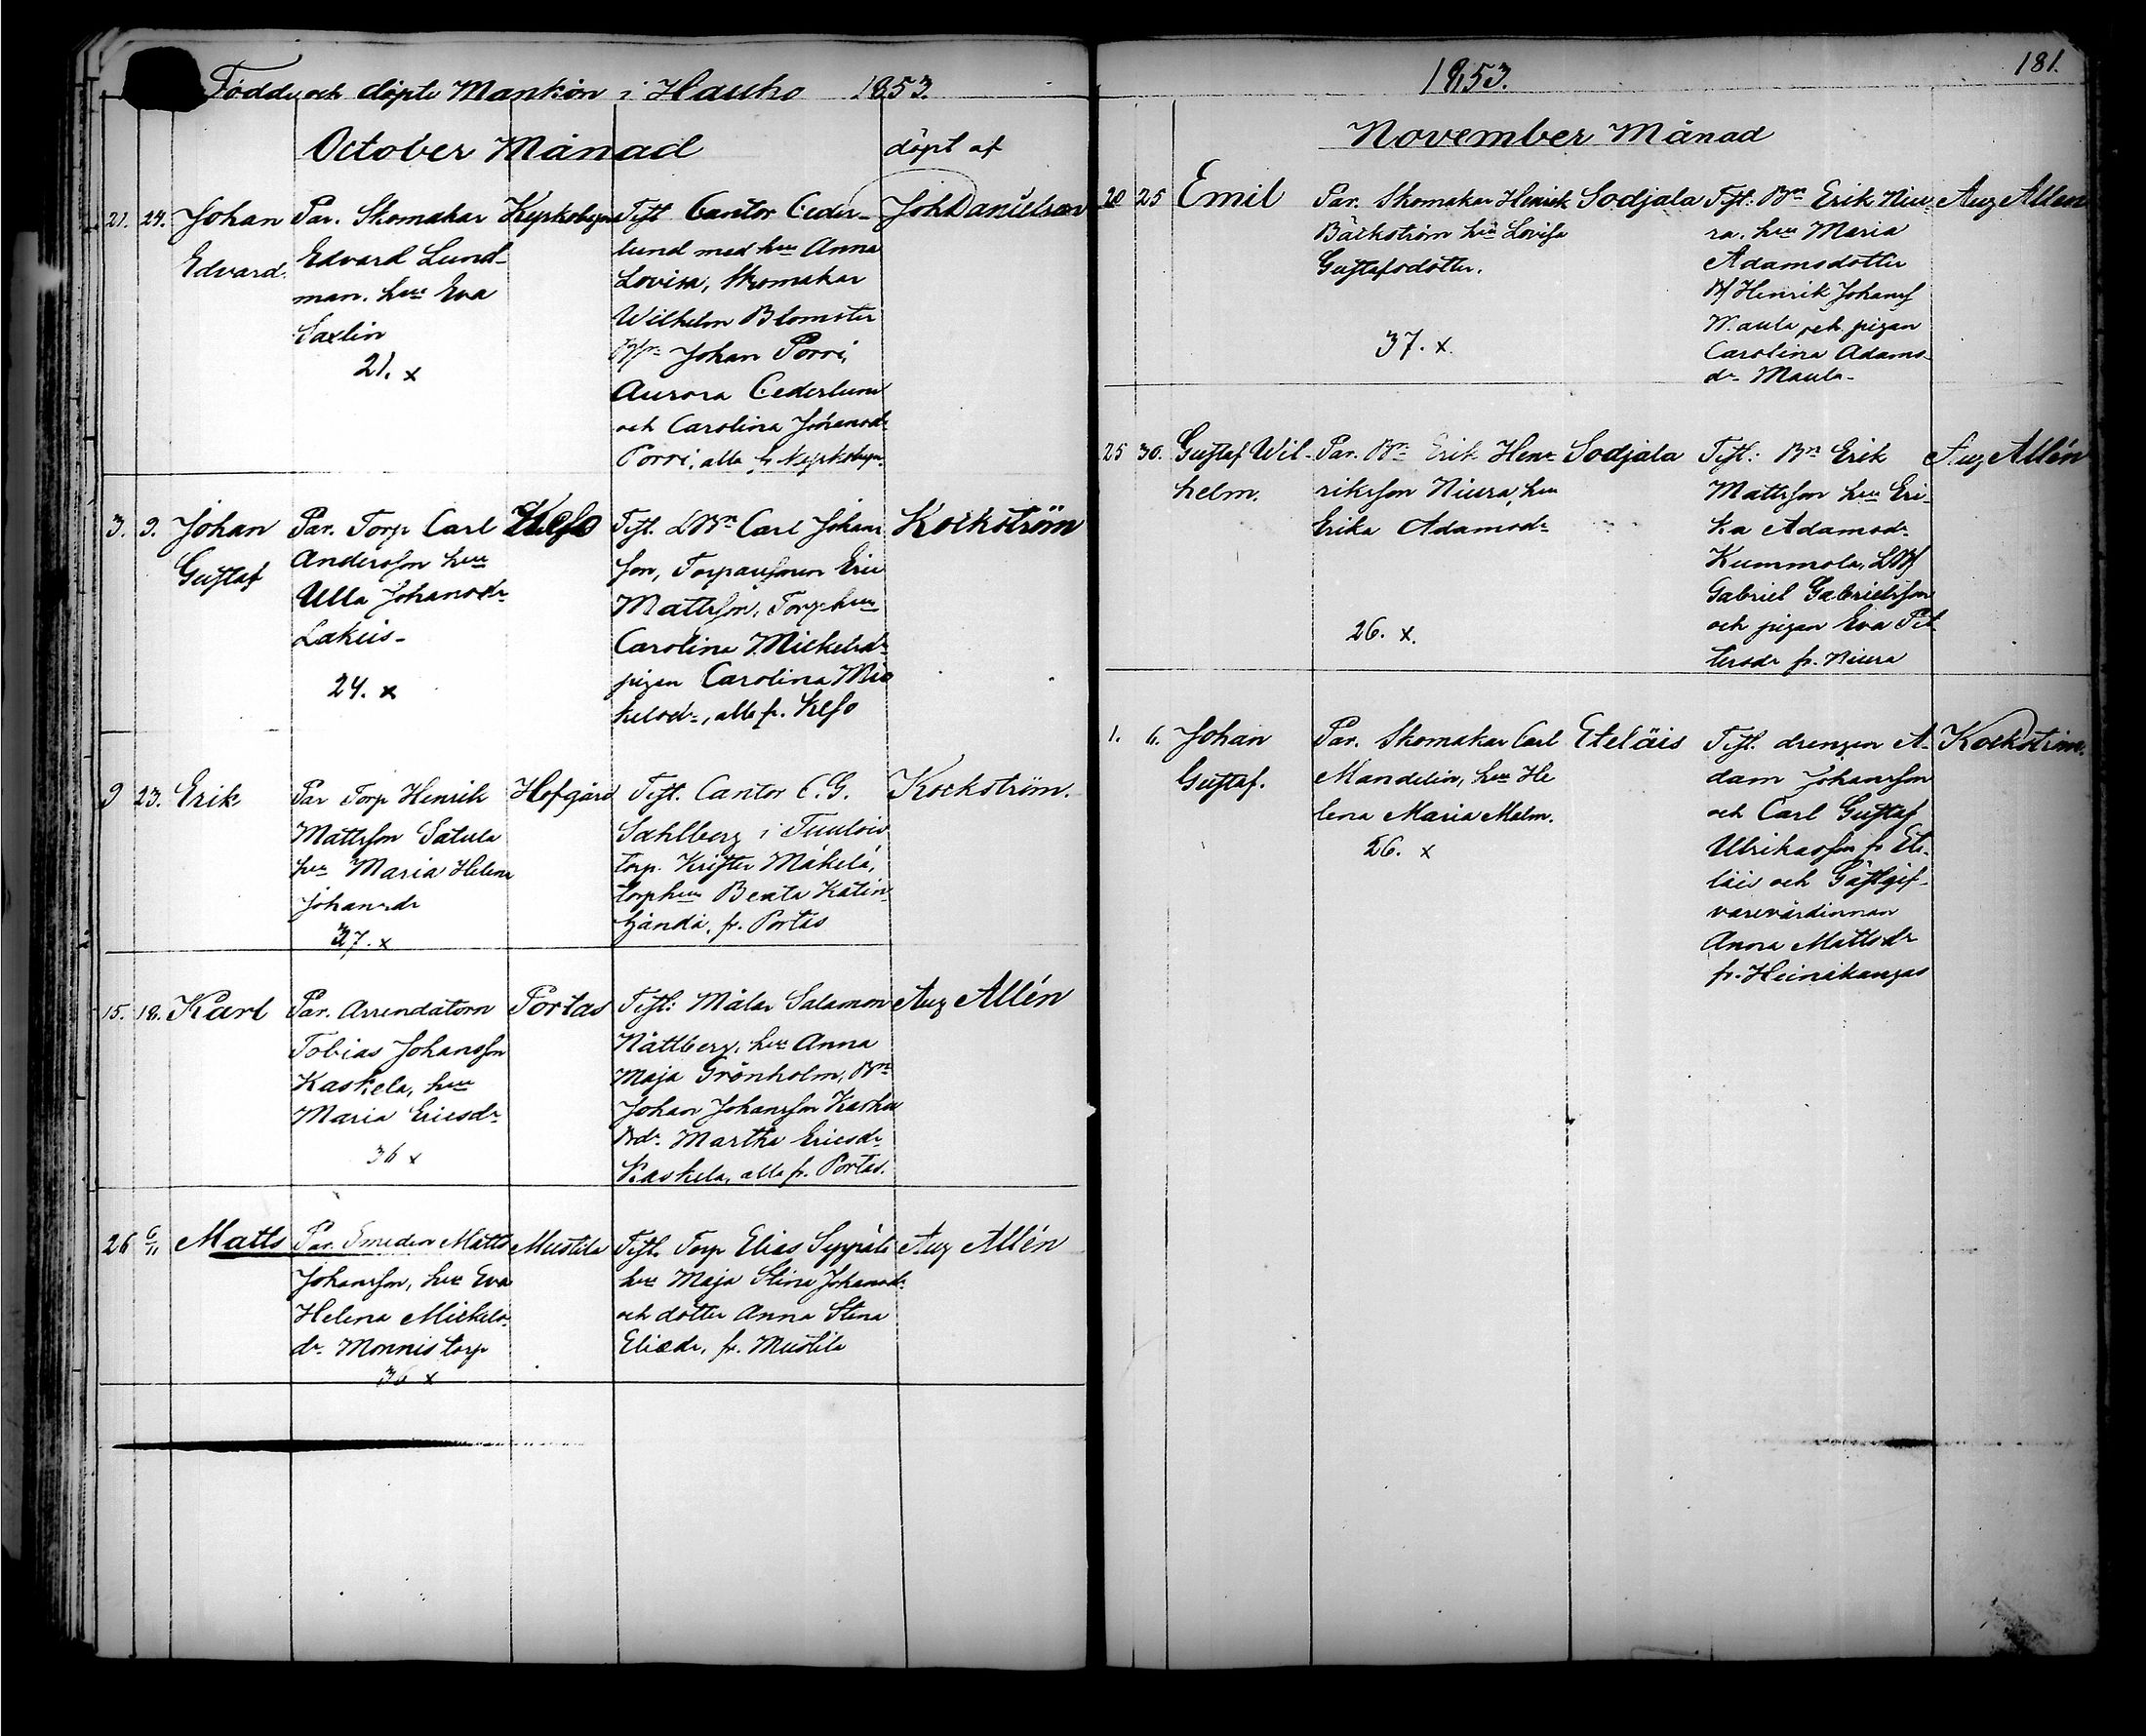 Födde och döpte Mankön i Hauho 1853.
October Månad
döpt af
21. 24. Johan Edvard.
Par. Skomakar
Edvard Lund-
man. hu Eva
Saxlin
21. x
Kyrkobyn
Test Cantor Ceder-
lund med hu Anna
Lovisa, Skomakar
Wilhelm Blomster
Johan Porri,
Aurora Cederlund
och Carolina Johansdr
Porri, alla fr Kyrkobyn.
Joh Danielson
3. 9. Johan Gustaf
Par. Torp Carl
Andersson hu
Ulla Johansdr
Lakeis-
24. x
Test. LBn Carl Johans
son, Torparsonen Eric
Mattsson, Torp hu
Carolina Mickelsdr
pigan Carolina Mic
kelsdr, alla fr.
Kockström
9 23. Erik
Par Torp Henrik
Mattsson Satula
hu Maria Helena
Johansdr
37. x
Hofgård
Test. Cantor C. G.
Sahlberg i Tuulois
torp. Krister Mäkelä,
torp hu Beata Katin
fr. Portas
Kockström.
15. 18. Karl
Par. Arrendatorn
Tobias Johansson
Kaskela, hu
Maria Ericsdr
36 x
Portas
Test: Målar Salamon
Nättberg, hu Anna
Maja Grönholm, Bn
Johan Johansson Kaske
Bdr Martha Ericsdr
Kaskela, alla fr. Portas.
Aug Allén
26 6/11 Matts
Par. Smeden Matts
Johansson, hu Eva
Helena Mickels-
dr Monnis torp
36 x
Mustila
Test. Torp Elias Seppälä
hu Maja Stina Johansdr
och dotter Anna Stina
Eliædr, fr. Mustila
Aug Allén
1853.
181.
November Månad
20 25 Emil
Par. Skomakar Henrik
Bäckström hu Lovisa
Gustafsdotter.
37. x.
Sodjala
Test: Bn Erik Niu-
ra, hu Maria
Adamsdotter
Henrik Johanss
Maula och pigan
Carolina Adams-
dr Maula-
Aug Allén
25 30. Gustaf Wil-
helm.
Par. Bn Erik Hen-
riksson Niura, hu
Erika Adamsdr
26. x.
Sodjala
Test: Bn Erik
Mattsson hu Eri-
ka Adamsdr
Kummola,
Gabriel Gabrielsson
och pigan Eva Pet-
tersdr fr. Niura
Aug Allén
1. 6. Johan
Gustaf.
Par. Skomakar Carl
Mandelin, hu He
lena Maria Malm.
26. x
Eteläis
Test. drengen A-
dam Johansson
och Carl Gustaf
Ulrikasson fr Ete-
läis och Gästgif-
varevärdinnan
Anna Mattsdr
fr. Heinäkangas
Kockström.